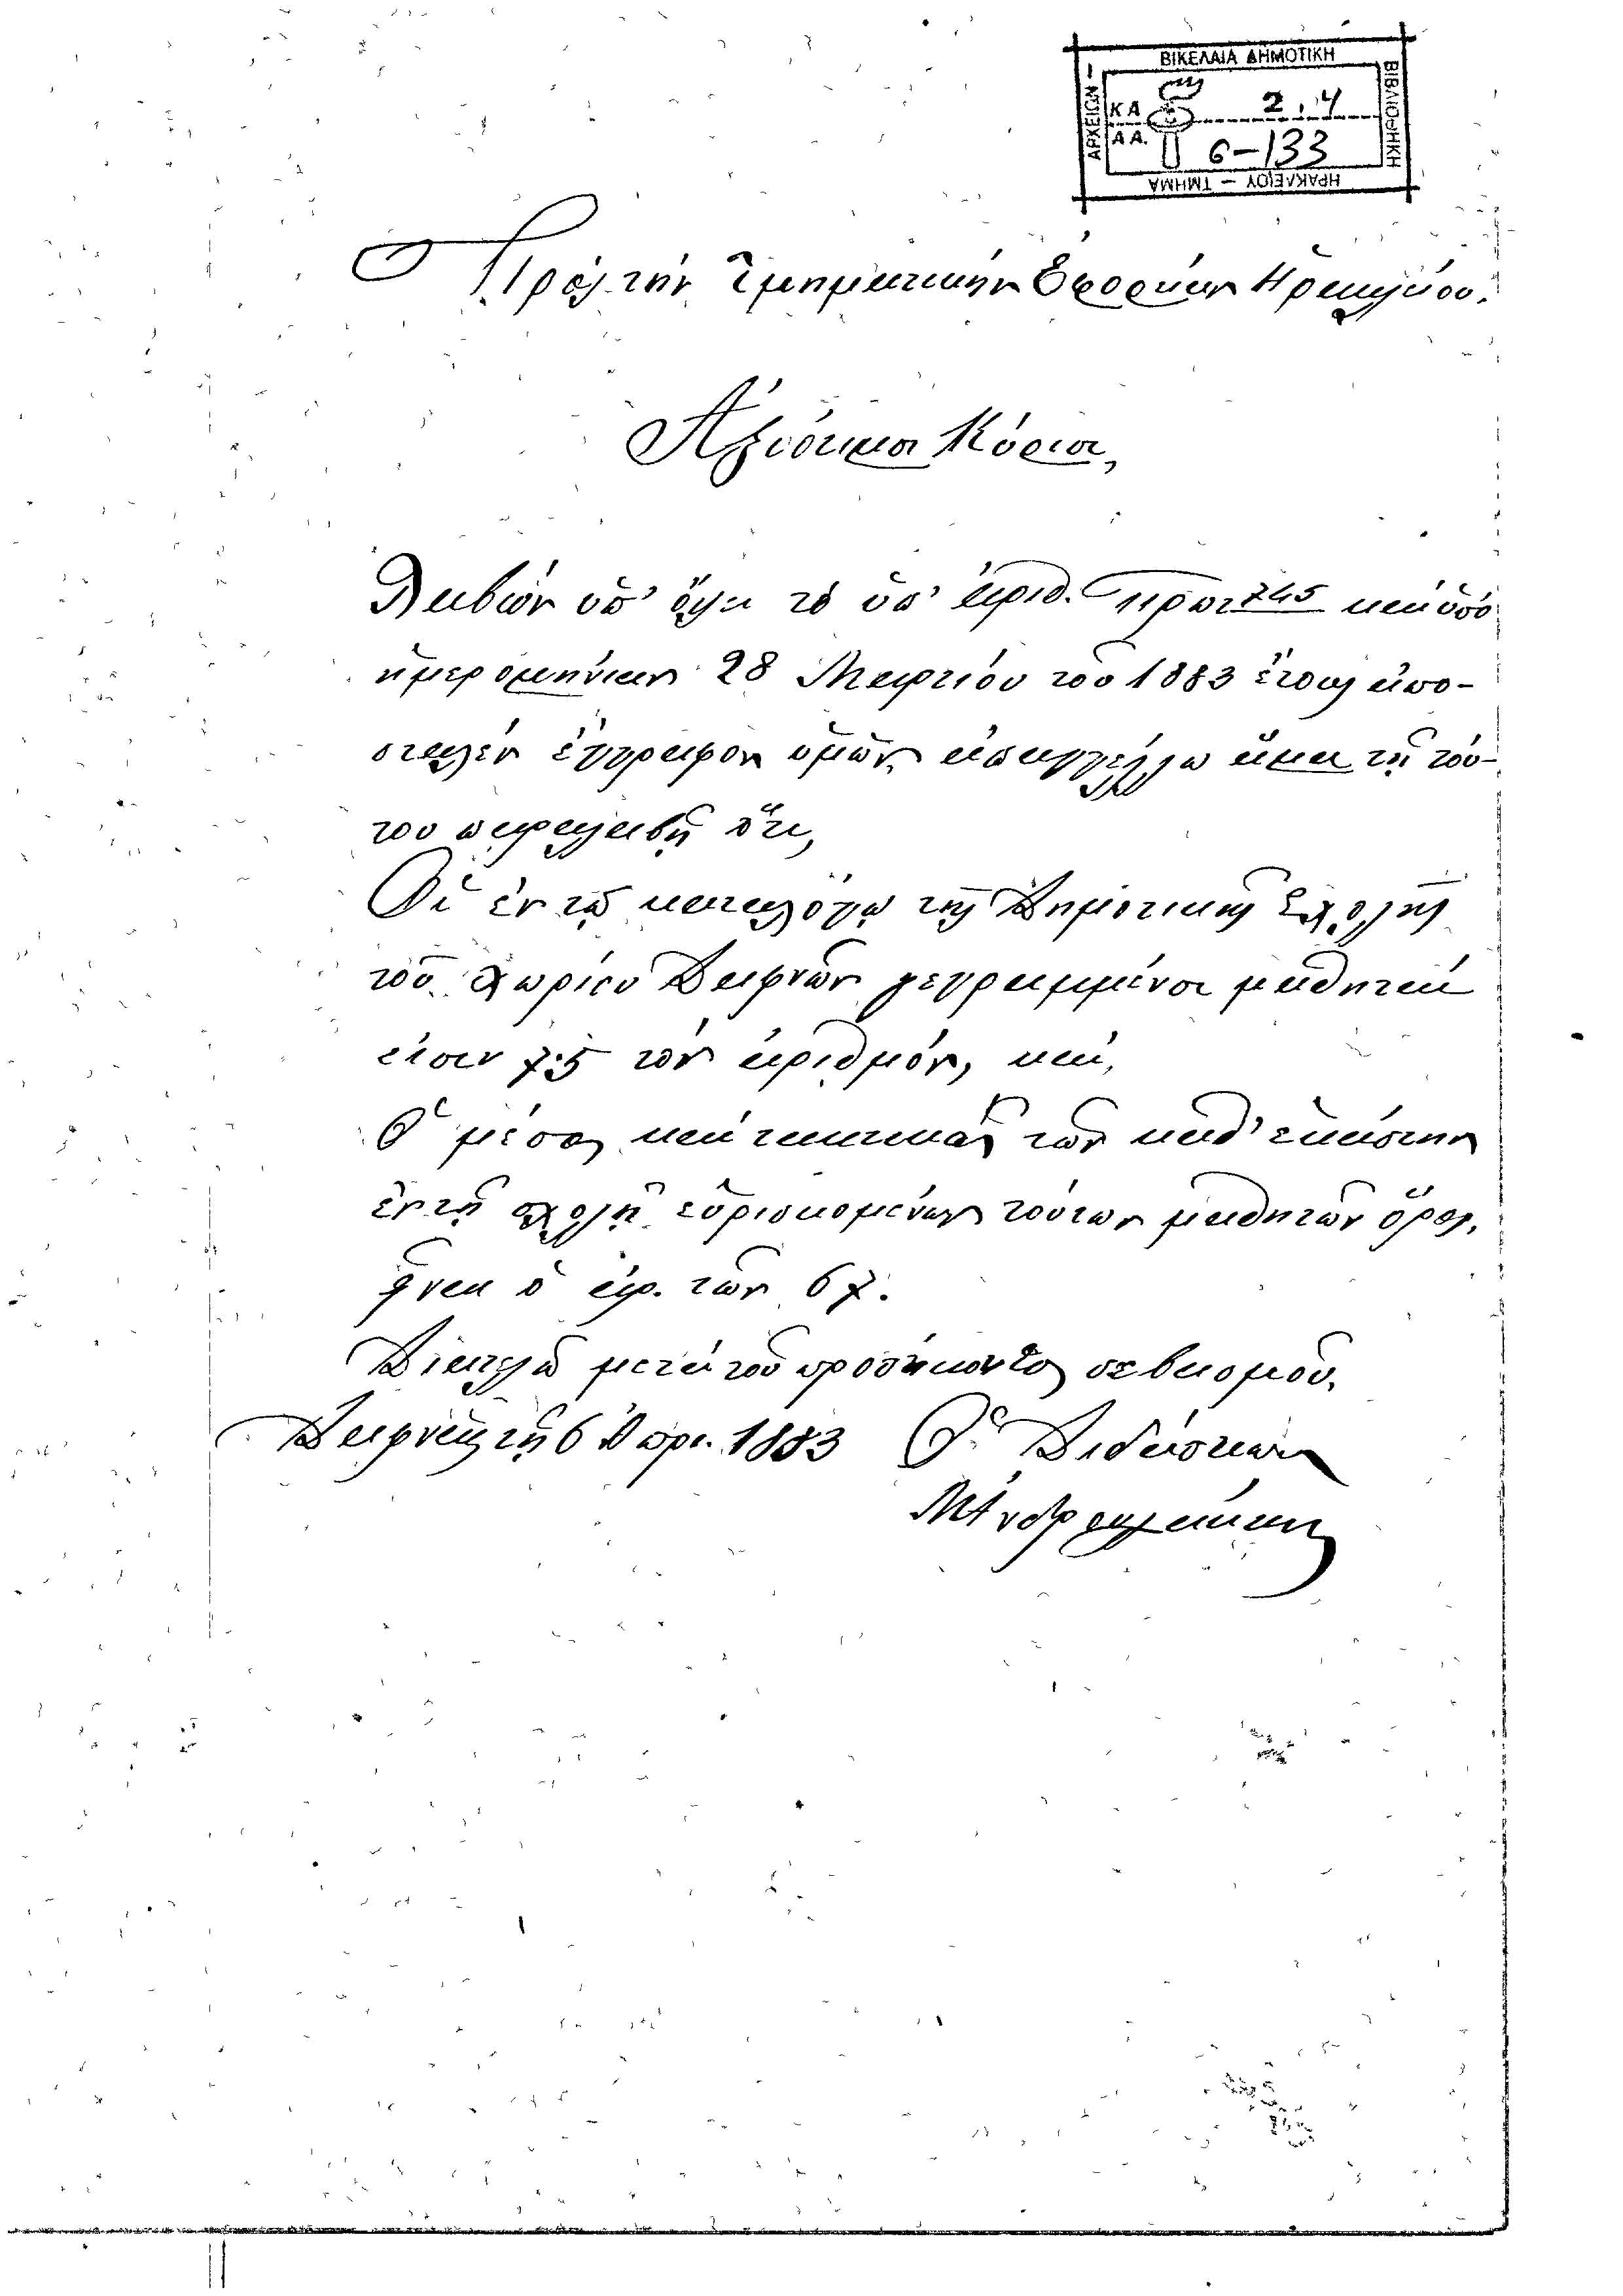 ΒΙΚΕΛΑΙΑ ΔΗΜΟΤΙΚΗ
ΒΙΒΛΙΟΘΗΚΗ
ΗΡΑΚΛΕΙΟΥ – ΤΜΗΜΑ
ΑΡΧΕΙΩΝ –
ΚΑ 2.4
ΑΑ. 6–133
Πρὸς τὴν Τμηματικὴν Ἐφορείαν Ἡρακλείου.
Ἀξιότιμοι Κύριοι,
Λαβὼν ὑπ' ὄψει τὸ ὑπ' ἀριθ. πρωτ 745 καὶ ὑπὸ
ἡμερομηνίαν 28 Μαρτίου τοῦ 1883 ἔτους ἀπο-
σταλὲν ἔγγραφον ὑμῶν, ἀπαγγέλλω ἅμα τῇ τού-
του παραλαβῇ ὅτι,
Οἱ ἐν τῷ καταλόγῳ τῆς Δημοτικῆς Σχολῆς
τοῦ χωρίου Δαφνῶν γεγραμμένοι μαθηταὶ
εἰσιν 75 τὸν ἀριθμόν, καὶ,
Ὁ μέσος καὶ τακτικὸς τῶν καθ' ἑκάστην
ἐν τῇ σχολῇ εὑρισκομένων τούτων μαθητῶν ὅρος,
εἶναι ὁ ἀρ. τῶν 67.
Διατελῶ μετὰ τοῦ προσήκοντος σεβασμοῦ.
Δαφναῖς τῇ 6 Ἀπρι. 1883 Ὁ Διδάσκων